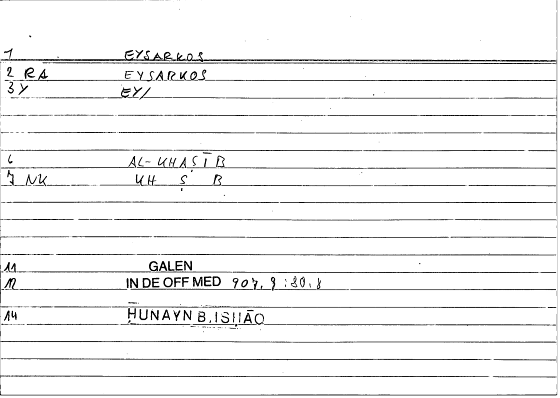 1 EYSARKOS
2 RA EYSARKOS
3 Y EY/
6 AL-KHAṢĪB
7 NK KH Ṣ B
11 GALEN
12 IN DE OFF MED 907, 9 :80,8
14 ḤUNAYN B. ISḤĀQ